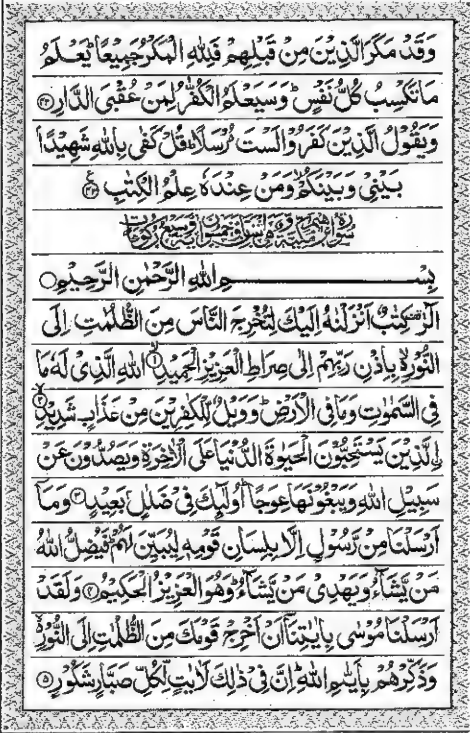 وَقَدْ مَكَرَ الَّذِيْنَ مِنْ قَبْلِهِمْ فَلِلّٰهِ الْمَكْرُ جَمِيْعًا ؕ يَعْلَمُ
مَا تَكْسِبُ كُلُّ نَفْسٍ ؕ وَسَيَعْلَمُ الْكُفّٰرُ لِمَنْ عُقْبَى الدَّارِ ﴿۴۲﴾
وَيَقُوْلُ الَّذِيْنَ كَفَرُوْا لَسْتَ مُرْسَلًا ؕ قُلْ كَفٰى بِاللّٰهِ شَهِيْدًۢا
بَيْنِيْ وَبَيْنَكُمْ ۙ وَمَنْ عِنْدَهٗ عِلْمُ الْكِتٰبِ ﴿۴۳﴾
بِسْمِ اللّٰهِ الرَّحْمٰنِ الرَّحِيْمِ
الٓرٰ ۟ كِتٰبٌ اَنْزَلْنٰهُ اِلَيْكَ لِتُخْرِجَ النَّاسَ مِنَ الظُّلُمٰتِ اِلَى
النُّوْرِ ۙ بِاِذْنِ رَبِّهِمْ اِلٰى صِرَاطِ الْعَزِيْزِ الْحَمِيْدِ ﴿۱﴾ اللّٰهِ الَّذِيْ لَهٗ مَا
فِي السَّمٰوٰتِ وَمَا فِي الْاَرْضِ ؕ وَوَيْلٌ لِّلْكٰفِرِيْنَ مِنْ عَذَابٍ شَدِيْدِۙ ﴿۲﴾
اِلَّذِيْنَ يَسْتَحِبُّوْنَ الْحَيٰوةَ الدُّنْيَا عَلَى الْاٰخِرَةِ وَيَصُدُّوْنَ عَنْ
سَبِيْلِ اللّٰهِ وَيَبْغُوْنَهَا عِوَجًا ؕ اُولٰٓئِكَ فِيْ ضَلٰلٍۭ بَعِيْدٍ ﴿۳﴾ وَمَاۤ
اَرْسَلْنَا مِنْ رَّسُوْلٍ اِلَّا بِلِسَانِ قَوْمِهٖ لِيُبَيِّنَ لَهُمْ ؕ فَيُضِلُّ اللّٰهُ
مَنْ يَّشَآءُ وَيَهْدِيْ مَنْ يَّشَآءُ ؕ وَهُوَ الْعَزِيْزُ الْحَكِيْمُ ﴿۴﴾ وَلَقَدْ
اَرْسَلْنَا مُوْسٰى بِاٰيٰتِنَاۤ اَنْ اَخْرِجْ قَوْمَكَ مِنَ الظُّلُمٰتِ اِلَى النُّوْرِ ۙ
وَذَكِّرْهُمْ بِاَيّٰىمِ اللّٰهِ ؕ اِنَّ فِيْ ذٰلِكَ لَاٰيٰتٍ لِّكُلِّ صَبَّارٍ شَكُوْرٍ ﴿۵﴾